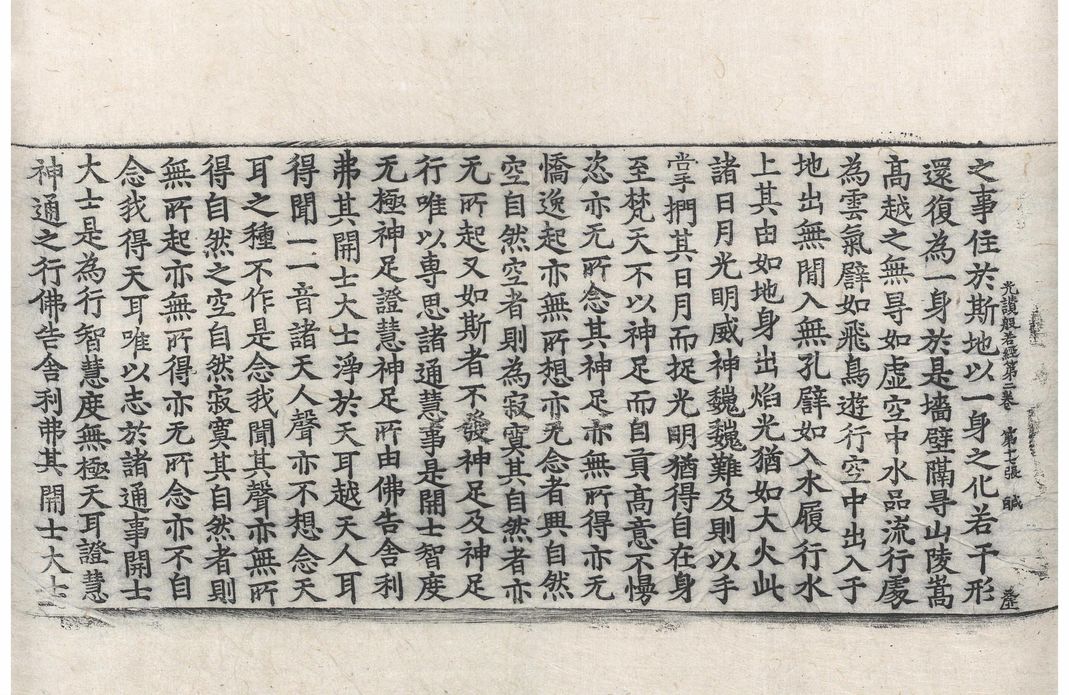 光讃般若經第二卷 第十七張 醎
之事住於斯地以一身之化若干形
還復為一身於是墻壁䦪㝵山陵嵩
髙越之無㝵如虛空中水品流行䖏
為雲氣譬如飛鳥遊行空中出入于
地出無閒入無孔譬如入水履行水
上其由如地身出焰光猶如大火此
諸日月光明威神巍巍難及則以手
掌捫其日月而捉光明猶得自在身
至梵天不以神足而自貢髙意不慢
恣亦无所念其神足亦無所得亦无
憍逸起亦無所想亦无念者興自然
空自然空者則為寂寞其自然者亦
无所起又如斯者不發神足及神足
行唯以專思諸通慧事是開士智度
无極神足證慧神足所由佛告舍利
弗其開士大士淨於天耳越天人耳
得聞一一音諸天人聲亦不想念天
耳之種不作是念我聞其聲亦無所
得自然之空自然寂寞其自然者則
無所起亦無所得亦无所念亦不自
念我得天耳唯以志於諸通事開士
大士是為行智慧度無極天耳證慧
神通之行佛告舍利弗其開士大士